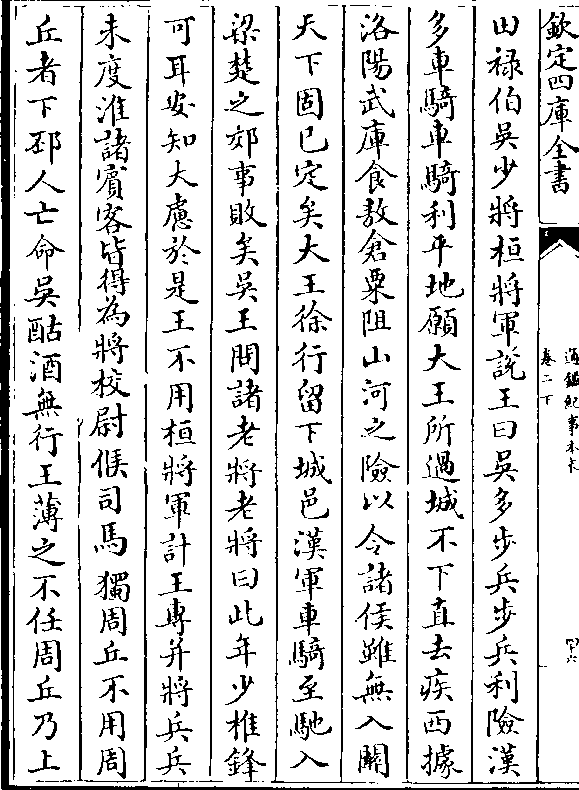 欽定四庫全書
通鑑紀事本末
卷二下
田祿伯吳少將桓將軍說王曰吳多步兵步兵利險漢
多車騎車騎利平地願大王所過城不下直去疾西據
洛陽武庫食敖倉粟阻山河之險以令諸侯雖無入關
天下固已定矣大王徐行留下城邑漢軍車騎至馳入
梁楚之郊事敗矣吳王問諸老將老將曰此年少椎鋒
可耳安知大慮於是王不用桓將軍計王專并將兵兵
未度淮諸賓客皆得為將校尉候司馬獨周丘不用周
丘者下邳人亡命吳酤酒無行王薄之不任周丘乃上